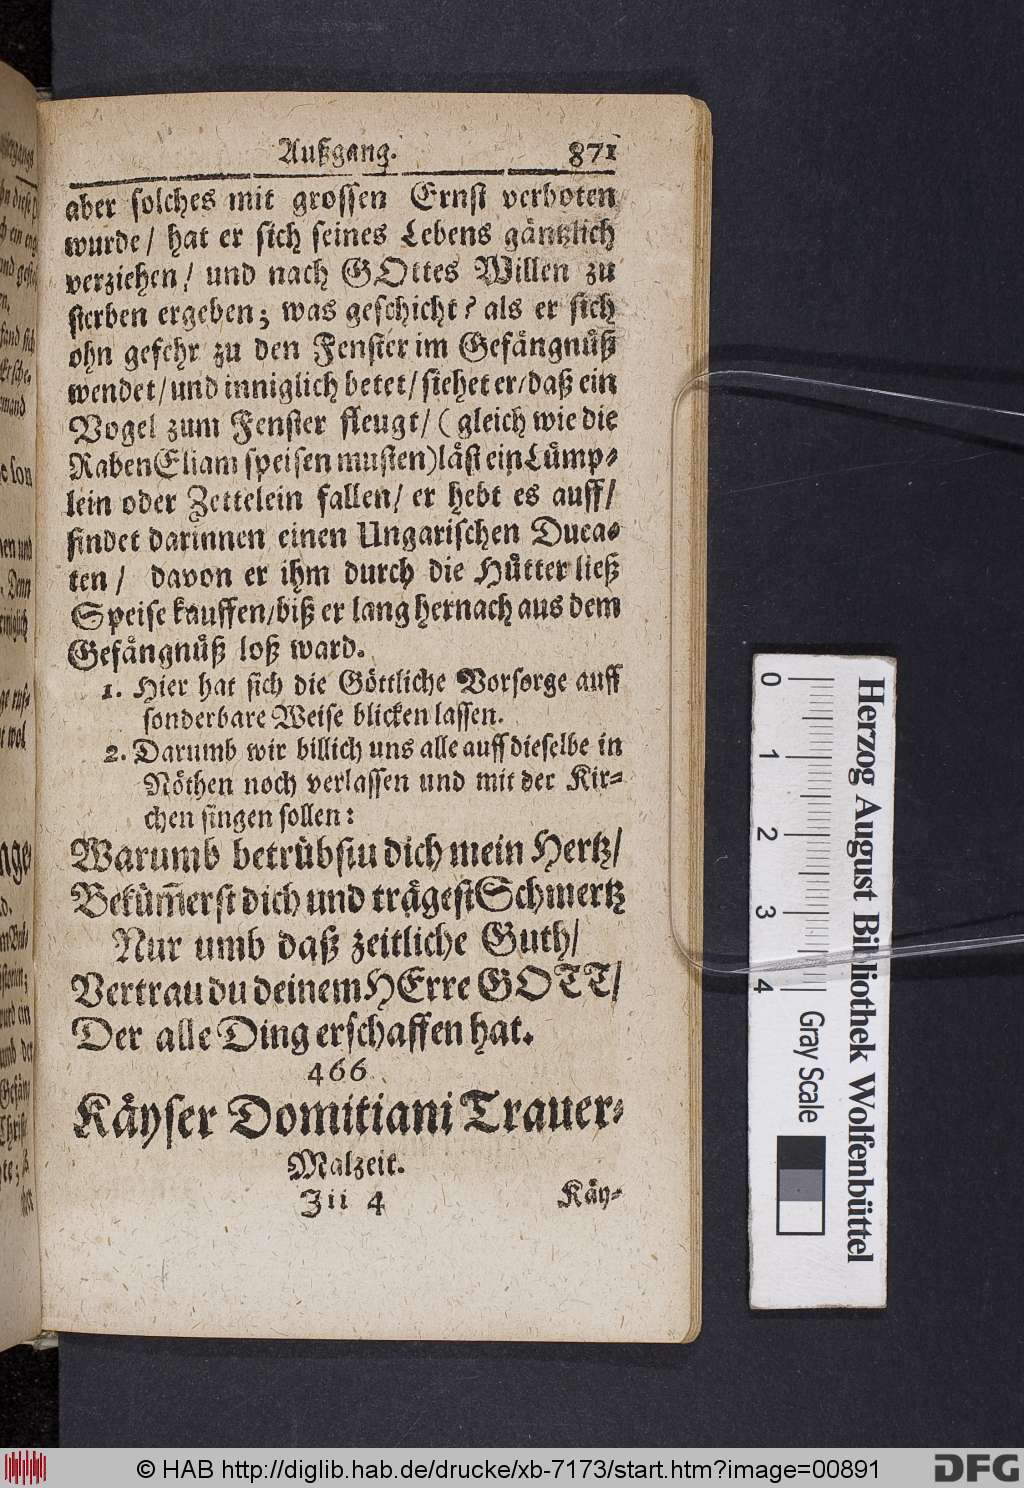 Außgang. 871
aber solches mit grossen Ernst verboten
wurde/ hat er sich seines Lebens gäntzlich
verziehen/ und nach GOttes Willen zu
sterben ergeben; was geschicht? als er sich
ohn gefehr zu den Fenster im Gefängnüß
wendet/ und inniglich betet/ siehet er/ daß ein
Vogel zum Fenster fleugt/ (gleich wie die
Raben Eliam speisen musten) läst ein Lümp-
lein oder Zettelein fallen/ er hebt es auff/
findet darinnen einen Ungarischen Duca-
ten/ davon er ihm durch die Hütter ließ
Speise kauffen/ biß er lang hernach aus dem
Gefängnüß loß ward.
1. Hier hat sich die Göttliche Vorsorge auff
sonderbare Weise blicken lassen.
2. Darumb wir billich uns alle auff dieselbe in
Nöthen noch verlassen und mit der Kir-
chen singen sollen:
Warumb betrübstu dich mein Hertz/
Bekům̃erst dich und trägest Schmertz
Nur umb daß zeitliche Guth/
Vertrau du deinem HErre GOTT/
Der alle Ding erschaffen hat.
466
Käyser Domitiani Trauer-
Malzeit.
Jii 4 Käy-
0 1 2 3 4
Herzog August Bibliothek Wolfenbüttel
Gray Scale
© HAB http://diglib.hab.de/drucke/xb-7173/start.htm?image=00891
DFG